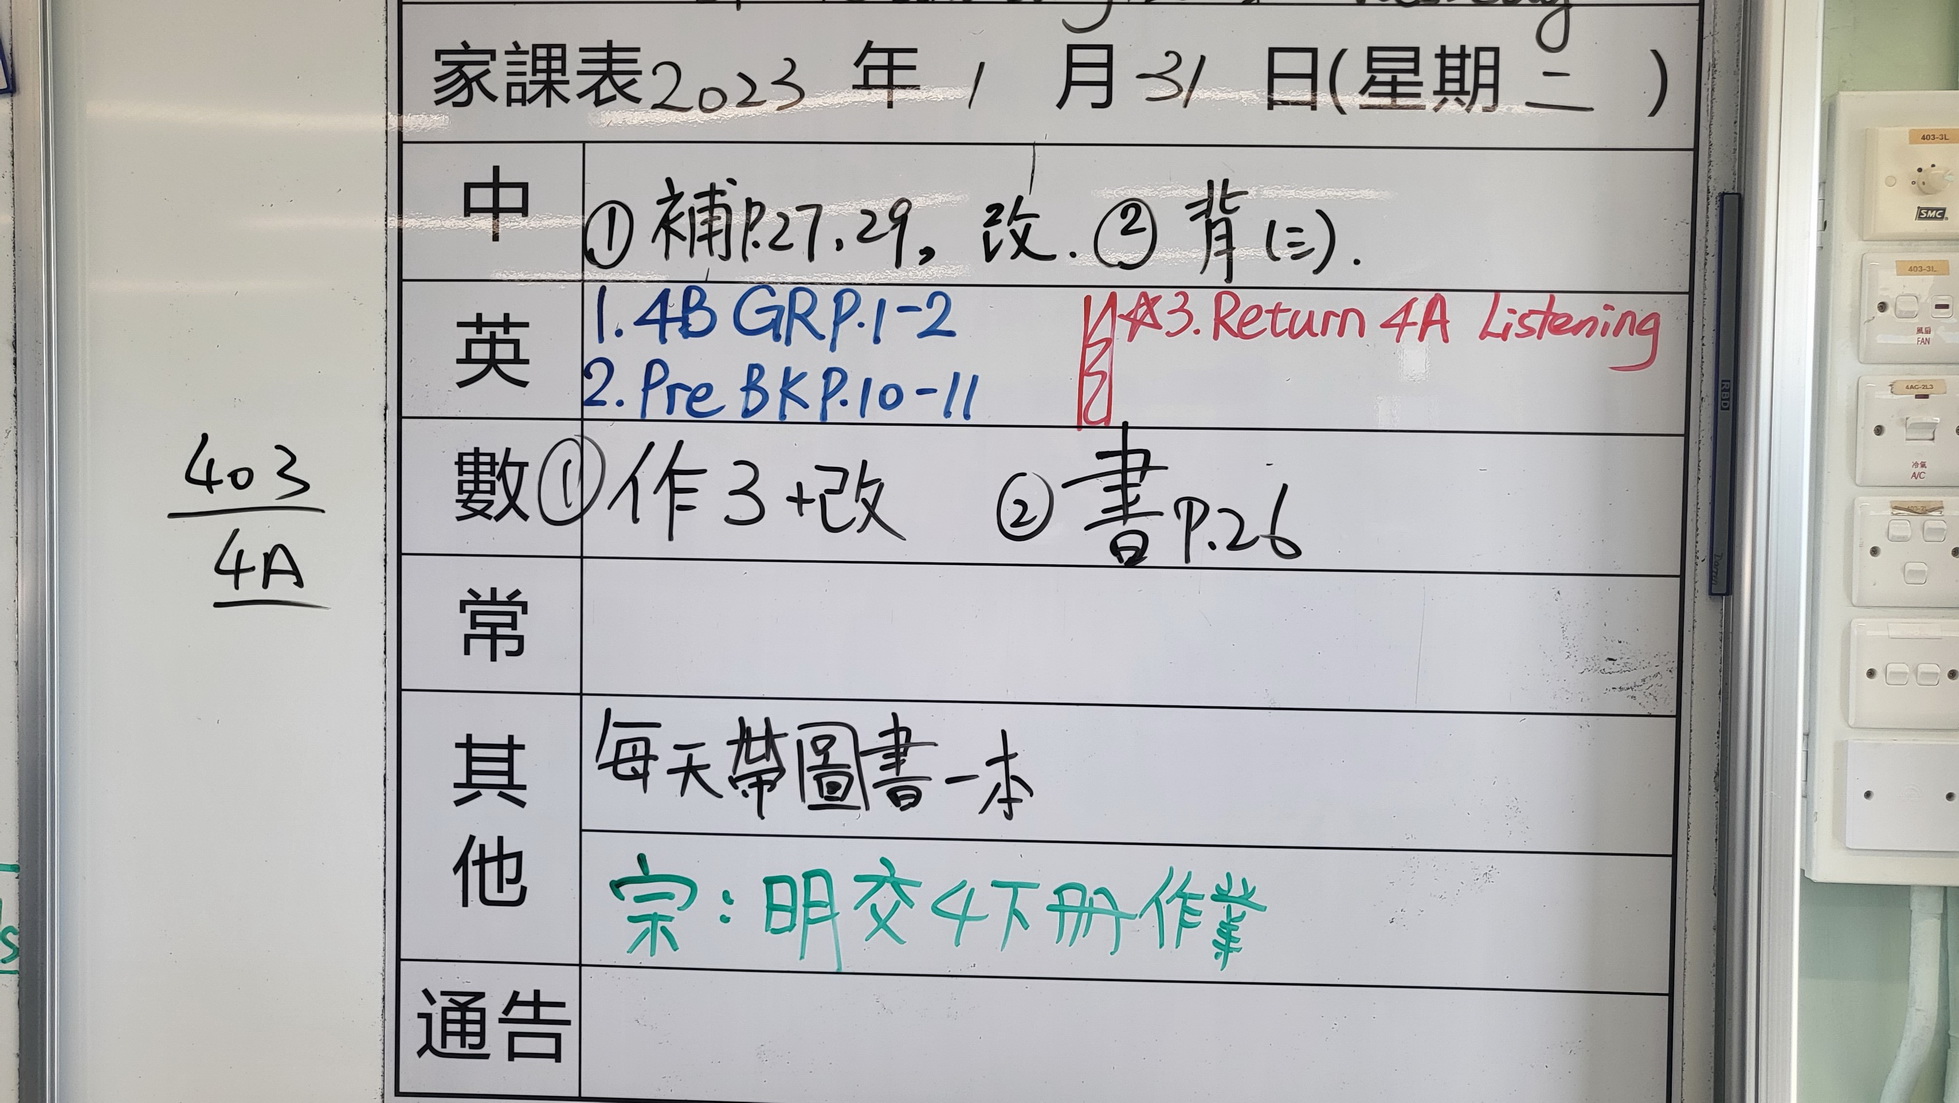 家課表 2023 年 1 月 31 日(星期 二 )
中 ① 補P.27、29。改. ② 背(三).
英 1. 4B GR P.1-2 ☆3. Return 4A Listening
2. Pre BK P.10-11
數 ① 作3+改 ② 書P.26
403
4A
常
其他 每天帶圖書一本
宗:明交4下冊作業
通告
403-3L
SMC
403-3L
風扇
FAN
4AC-2L3
冷氣
A/C
RBD